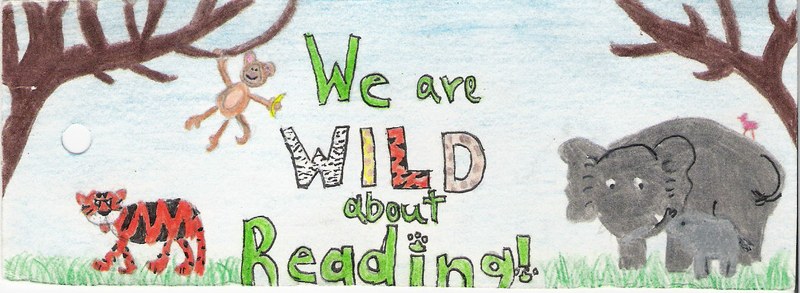 We are
WILD
about
Reading!